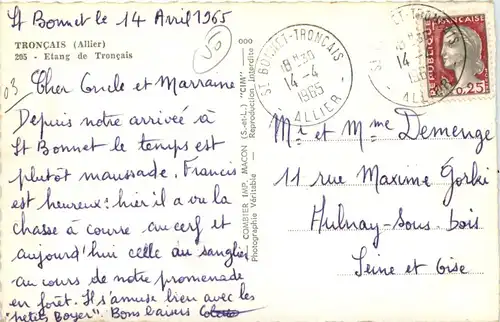 St Bonnet le 14 Avril 1965
TRONÇAIS (Allier)
205 - Etang de Tronçais
Cher Oncle et Marraine
Depuis notre arrivée à
St Bonnet le temps est
plutôt maussade. Francis
est heureux : hier il a vu la
chasse à courre au cerf et
aujourd'hui celle au sanglier
au cours de notre promenade
en forêt. Il s'amuse bien avec les
"petits Boyer". Bons baisers
COMBIER IMP. MACON (S.-et-L.) "CIM"
Photographie Véritable - Reproduction Interdite
ST BONNET-TRONÇAIS
18H30
14-4
1965
ALLIER
REPUBLIQUE FRANÇAISE
0,25
Mr et Mme Demenge
11 rue Maxime Gorki
Aulnay-Sous-bois
Seine et Oise